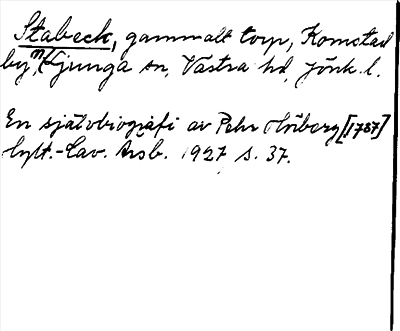 Stabeck, gammalt torp, Komstad
by, N. Ljunga sn, Västra hd, Jönk. l.
En självbiografi av Pehr Hörberg [1787]
Hylt.-Cav. Årsb. 1927 s. 37.